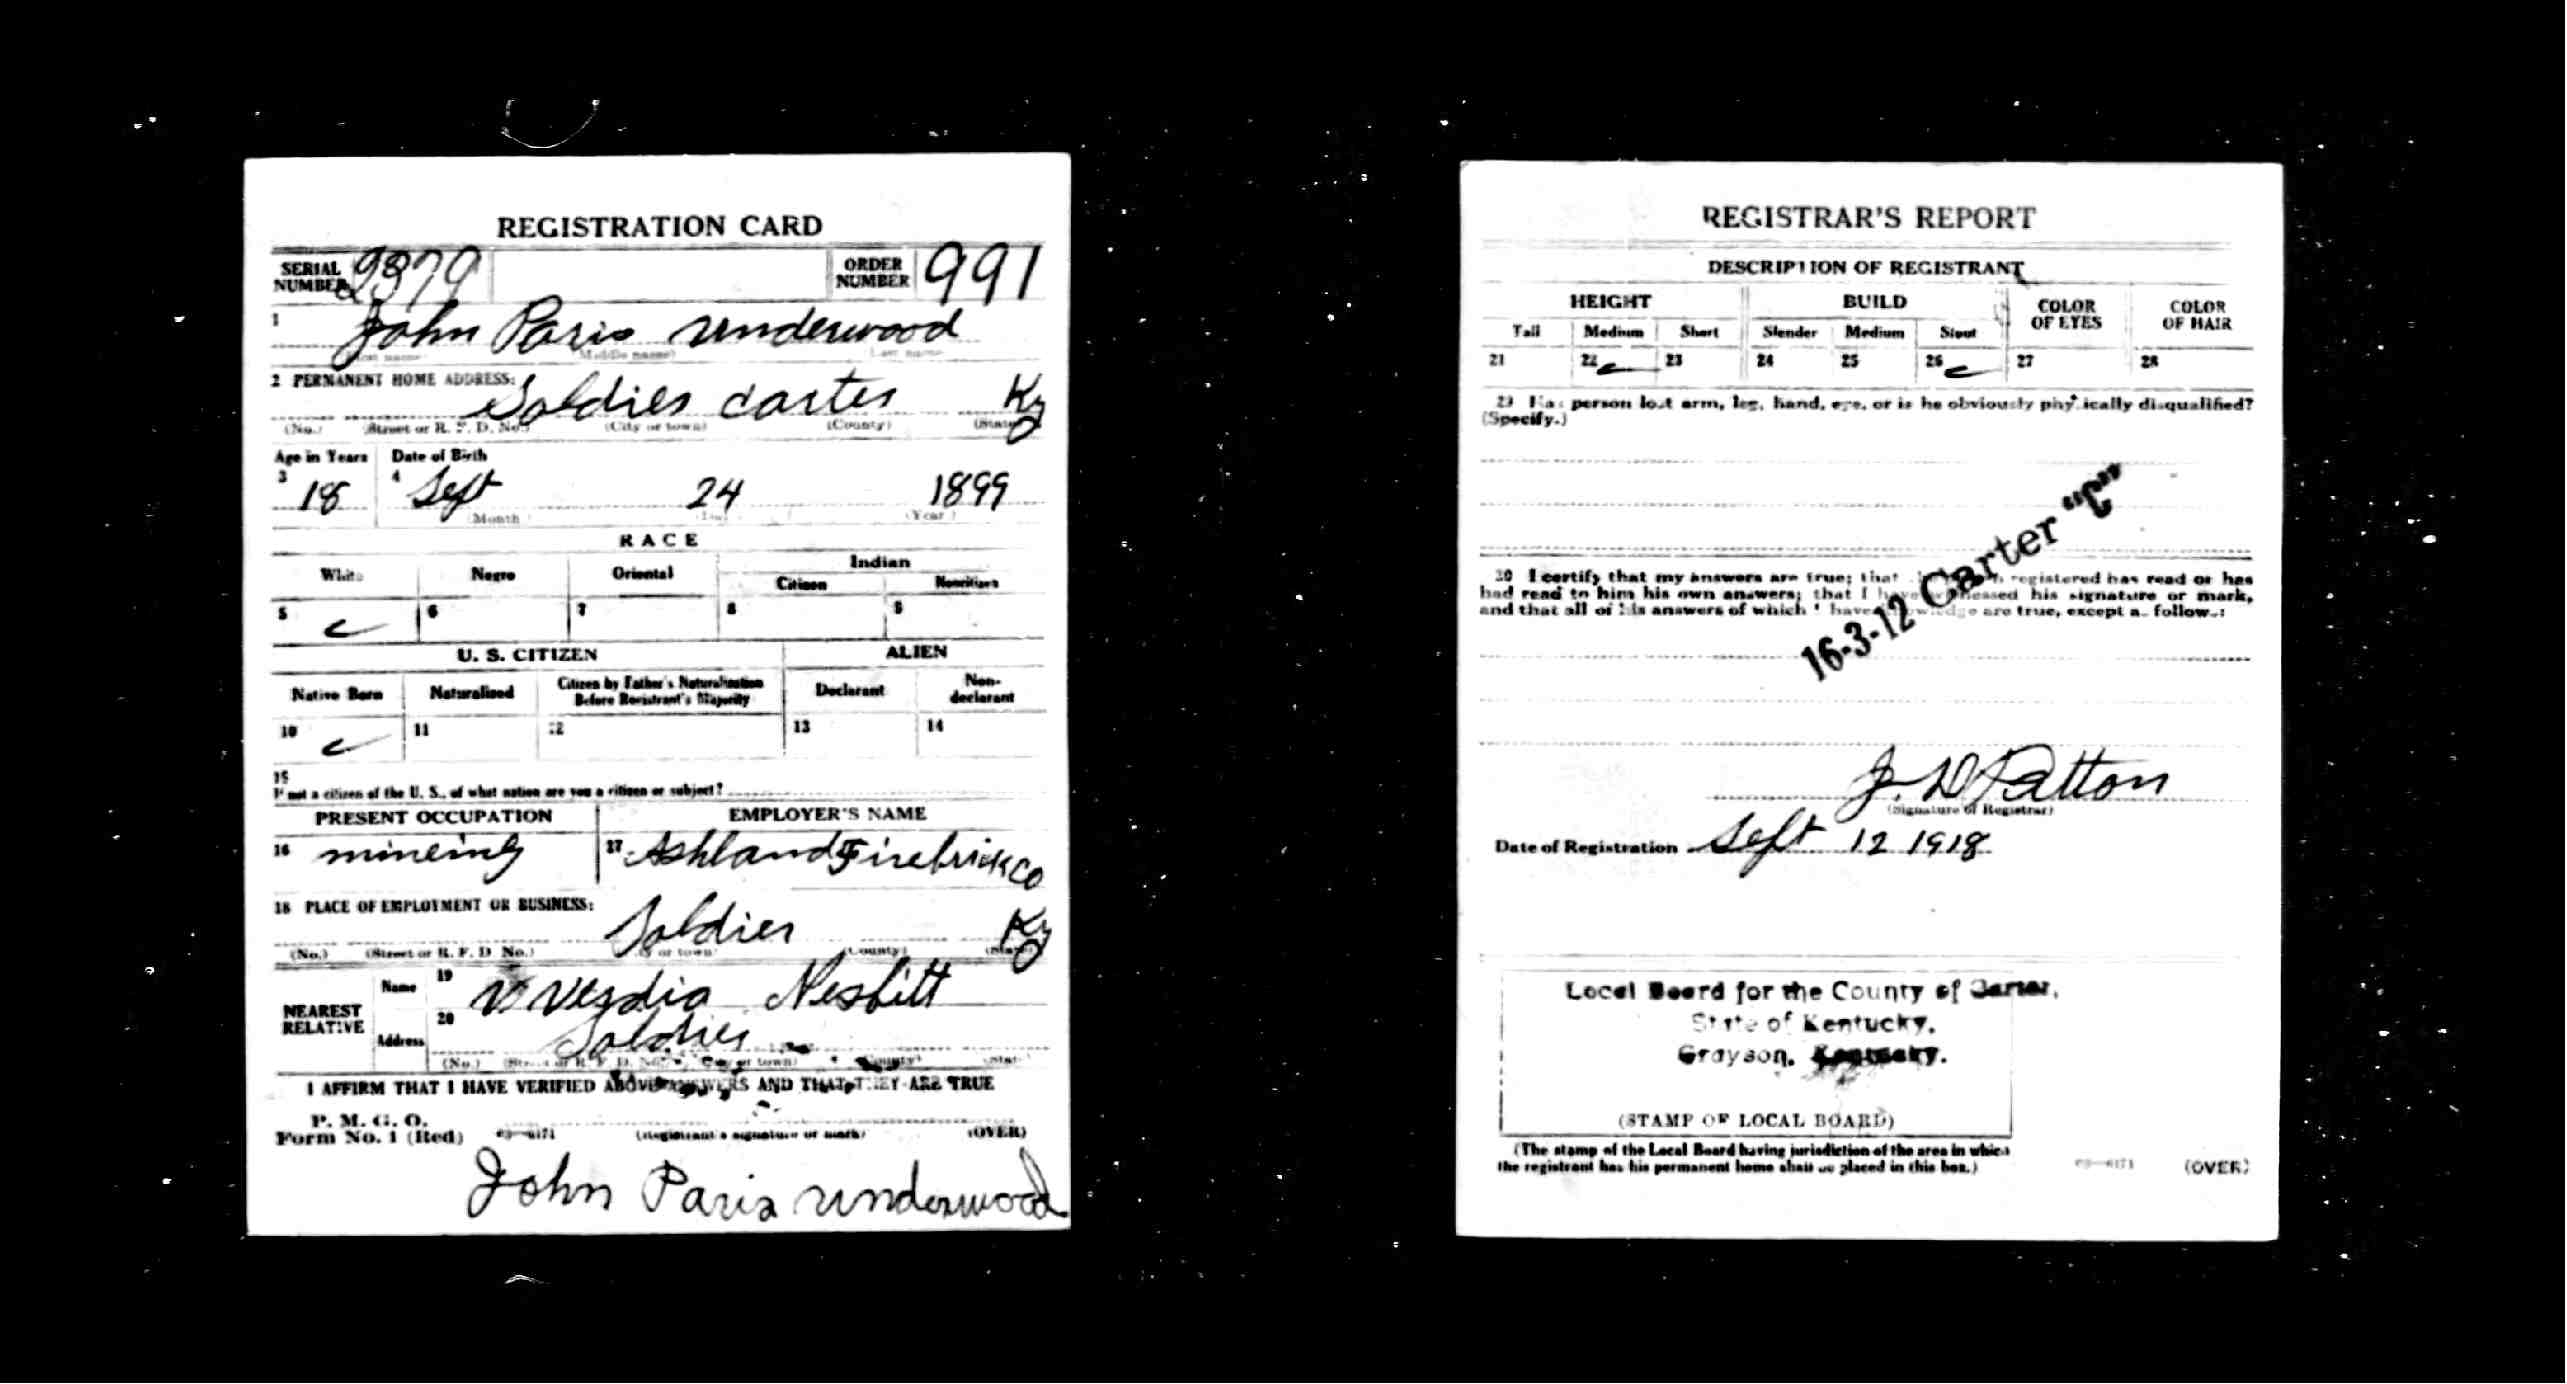 REGISTRATION CARD
SERIAL NUMBER 2379 ORDER NUMBER 991
1 John Paris Underwood
(First name) (Middle name) (Last name)
2 PERMANENT HOME ADDRESS:
Soldier Carter Ky
(No.) (Street or R. F. D. No.) (City or town) (County) (State)
Age in Years Date of Birth
3 18 4 Sept 24 1899
(Month) (Day) (Year)
RACE
White Negro Oriental Indian
Citizen Noncitizen
5 6 7 8 9
U. S. CITIZEN ALIEN
Native Born Naturalized Citizen by Father's Naturalization Before Registrant's Majority Declarant Non-declarant
10 11 12 13 14
15
If not a citizen of the U. S., of what nation are you a citizen or subject?
PRESENT OCCUPATION EMPLOYER'S NAME
16 mineing 17 Ashland Firebrick Co
18 PLACE OF EMPLOYMENT OR BUSINESS:
Soldier Ky
(No.) (Street or R. F. D. No.) (City or town) (County) (State)
NEAREST RELATIVE
Name 19 Nesbitt
Address 20 Soldier
(No.) (Street or R. F. D. No.) (City or town) (County) (State)
I AFFIRM THAT I HAVE VERIFIED ABOVE ANSWERS AND THAT THEY ARE TRUE
P. M. G. O.
Form No. 1 (Red) 03—6171 (Registrant's signature or mark) (OVER)
John Paris Underwood
REGISTRAR'S REPORT
DESCRIPTION OF REGISTRANT
HEIGHT BUILD COLOR OF EYES COLOR OF HAIR
Tall Medium Short Slender Medium Stout
21 22 23 24 25 26 27 28
29 Has person lost arm, leg, hand, eye, or is he obviously physically disqualified?
(Specify.)
16-3-12 Carter "C"
30 I certify that my answers are true; that the person registered has read or has
had read to him his own answers; that I have witnessed his signature or mark,
and that all of his answers of which I have knowledge are true, except as follows:
J. D. Patton
(Signature of Registrar)
Date of Registration Sept 12 1918
Local Board for the County of Carter,
State of Kentucky,
Grayson, Kentucky.
(STAMP OF LOCAL BOARD)
(The stamp of the Local Board having jurisdiction of the area in which
the registrant has his permanent home shall be placed in this box.)
03—6171 (OVER)